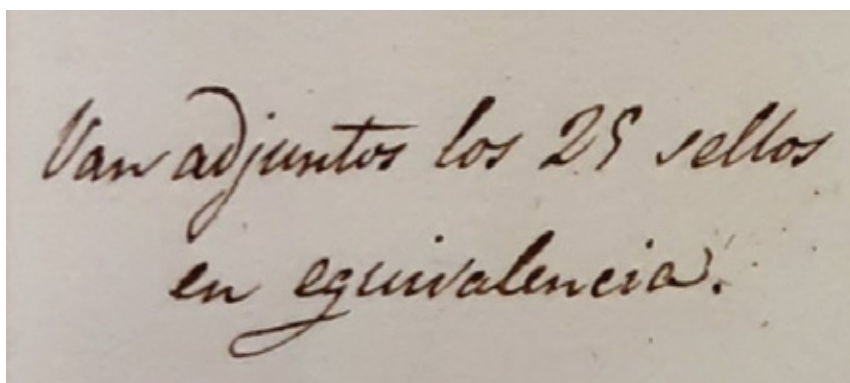 Van adjuntos los 25 sellos
en equivalencia.